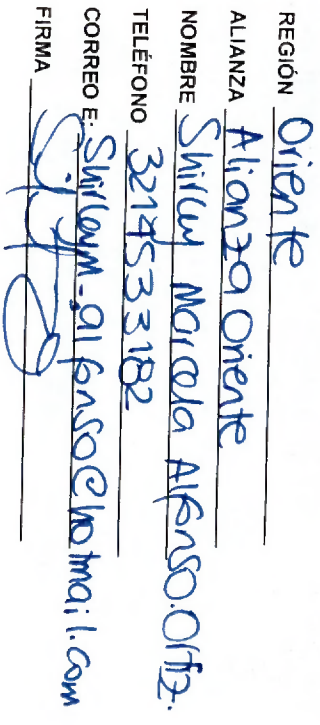 REGIÓN Oriente
ALIANZA Alianza Oriente
NOMBRE Shirley Marcela Alfonso.Ortiz.
TELÉFONO 3214533182
CORREO E: Shirleym-alfonso@hotmail.com
FIRMA